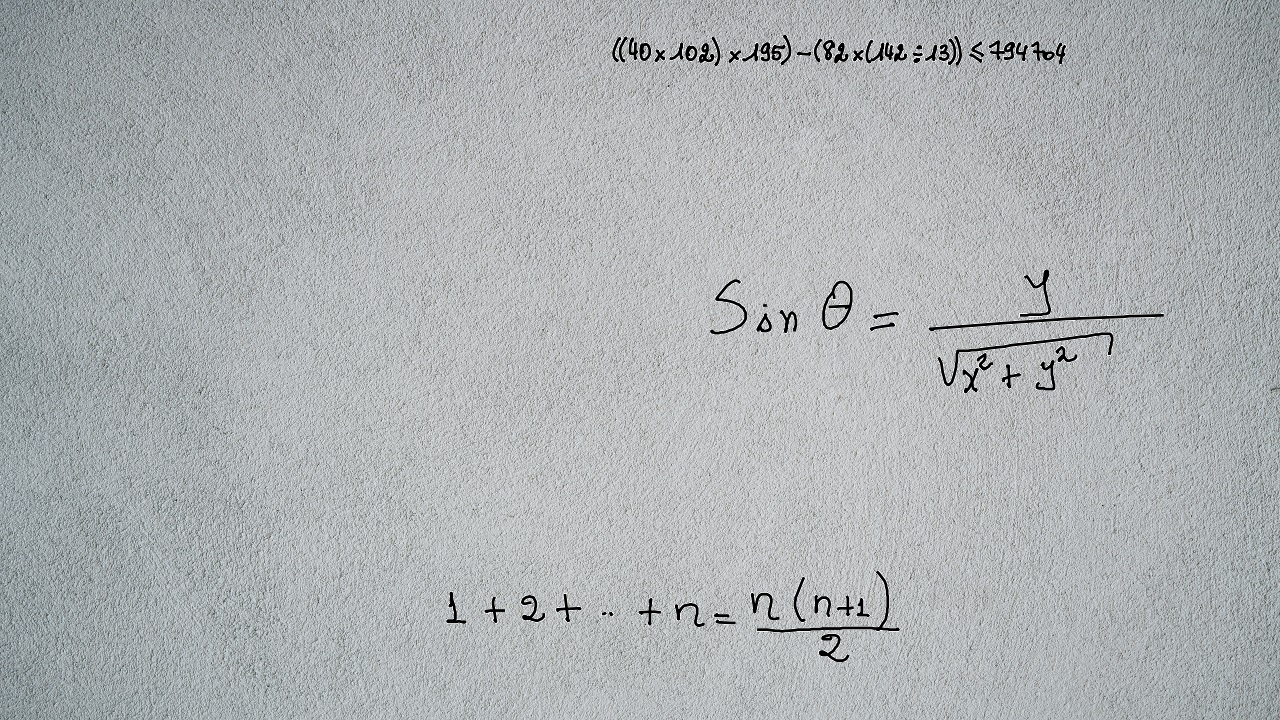 ((40×102)×195)−(82×(142÷13))≤794704
Sin θ = y / √(x² + y²)
1 + 2 + .. + n = n(n+1) / 2